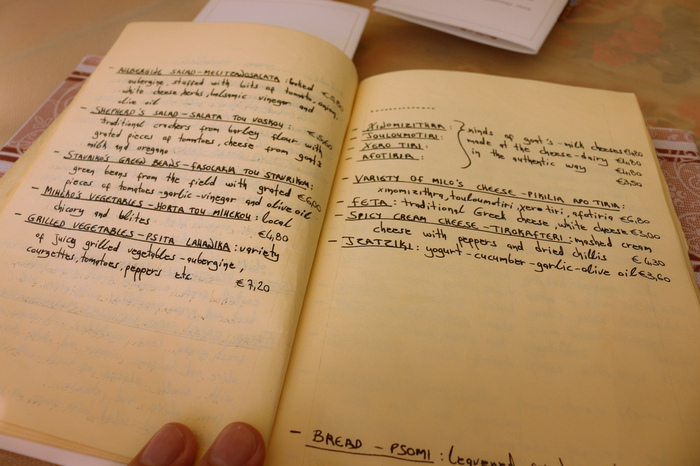 - AUBERGINE SALAD - MELITZANOSALATA : baked
aubergine, stuffed with bits of tomato, onion,
white cheese, herbs, balsamic vinegar and
olive oil
- SHEPHERD'S SALAD - SALATA TOU VOSKOU :
traditional crackers from barley flour with
grated pieces of tomatoes, cheese from goat's
milk and oregano
- STAVRIKO'S GREEN BEANS - FASOLAKIA TOU STAVRIKOU:
green beans from the field with grated
pieces of tomatoes - garlic - vinegar and olive oil
- MIHLKO'S VEGETABLES - HORTA TOU MIHLKOU : local
chicory and blites €4,80
- GRILLED VEGETABLES - PSITA LAHANIKA : variety
of juicy grilled vegetables - aubergine,
courgettes, tomatoes, peppers etc €7,20
- XINOMIZITHRA:
- TOULOUMOTIRI:
- XERO TIRI:
- AFOTIRIA:
kinds of goat's - milk cheeses
made at the cheese - dairy €4,80
in the authentic way €4,80
- VARIETY OF MILO'S CHEESE - PIKILIA APO TIRIA:
xinomizithra, touloumotiri, xerotiri, afotiria €6,80
- FETA : traditional Greek cheese, white cheese €3,00
- SPICY CREAM CHEESE - TIROKAFTERI : mashed cream
cheese with peppers and dried chillis €4,30
- TZATZIKI : yogurt - cucumber - garlic - olive oil €3,60
- BREAD - PSOMI :